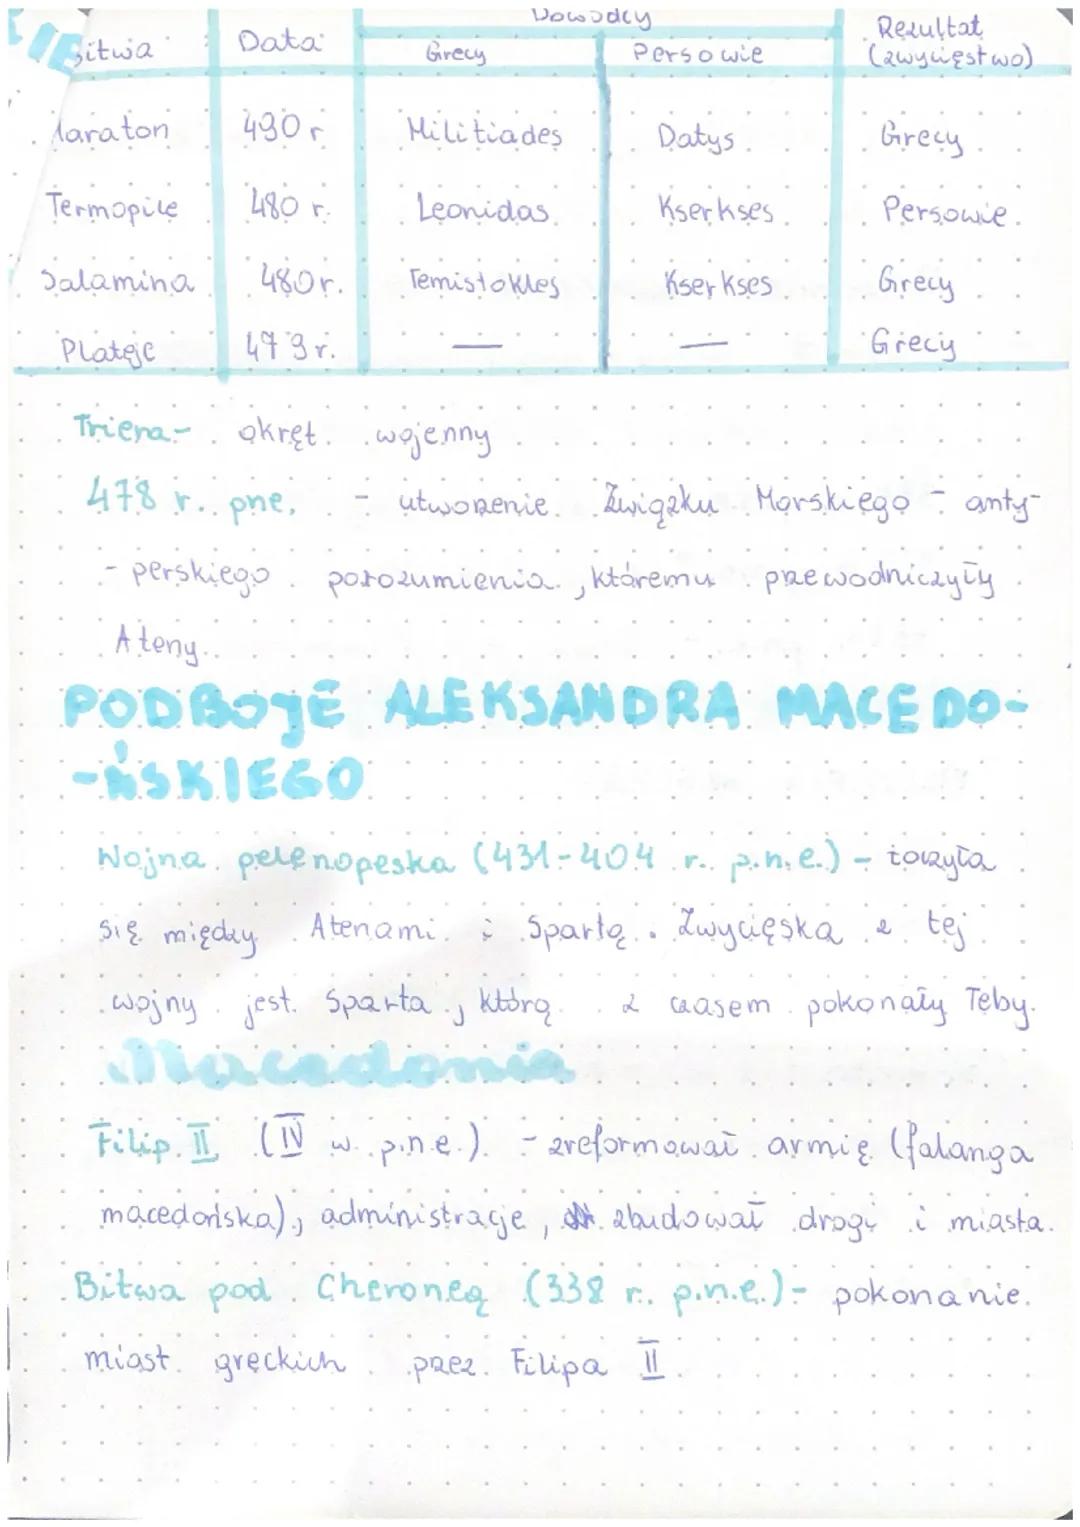 Dowódcy
Bitwa Data Grecy Persowie Rezultat
(zwycięstwo)
Maraton 490 r Militiades Datys Grecy
Termopile 480 r. Leonidas Kserkses Persowie
Salamina 480r. Temistokles Kserkses Grecy
Plateje 479 r. — — Grecy
Triera - okręt wojenny
478 r. pne. - utworzenie Związku Morskiego - anty-
- perskiego porozumienia, któremu przewodniczyły
Ateny.
PODBOJE ALEKSANDRA MACEDO-
-ŃSKIEGO
Wojna pelenopeska (431-404 r. p.n.e.) - toczyła
się między Atenami i Spartą. Zwycięską z tej
wojny jest Sparta, którą z czasem pokonały Teby.
Macedonia
Filip II (IV w. p.n.e.) - zreformował armię (falanga
macedońska), administracje, zbudował drogi i miasta.
Bitwa pod Cheroneą (338 r. p.n.e.) - pokonanie
miast greckich przez Filipa II